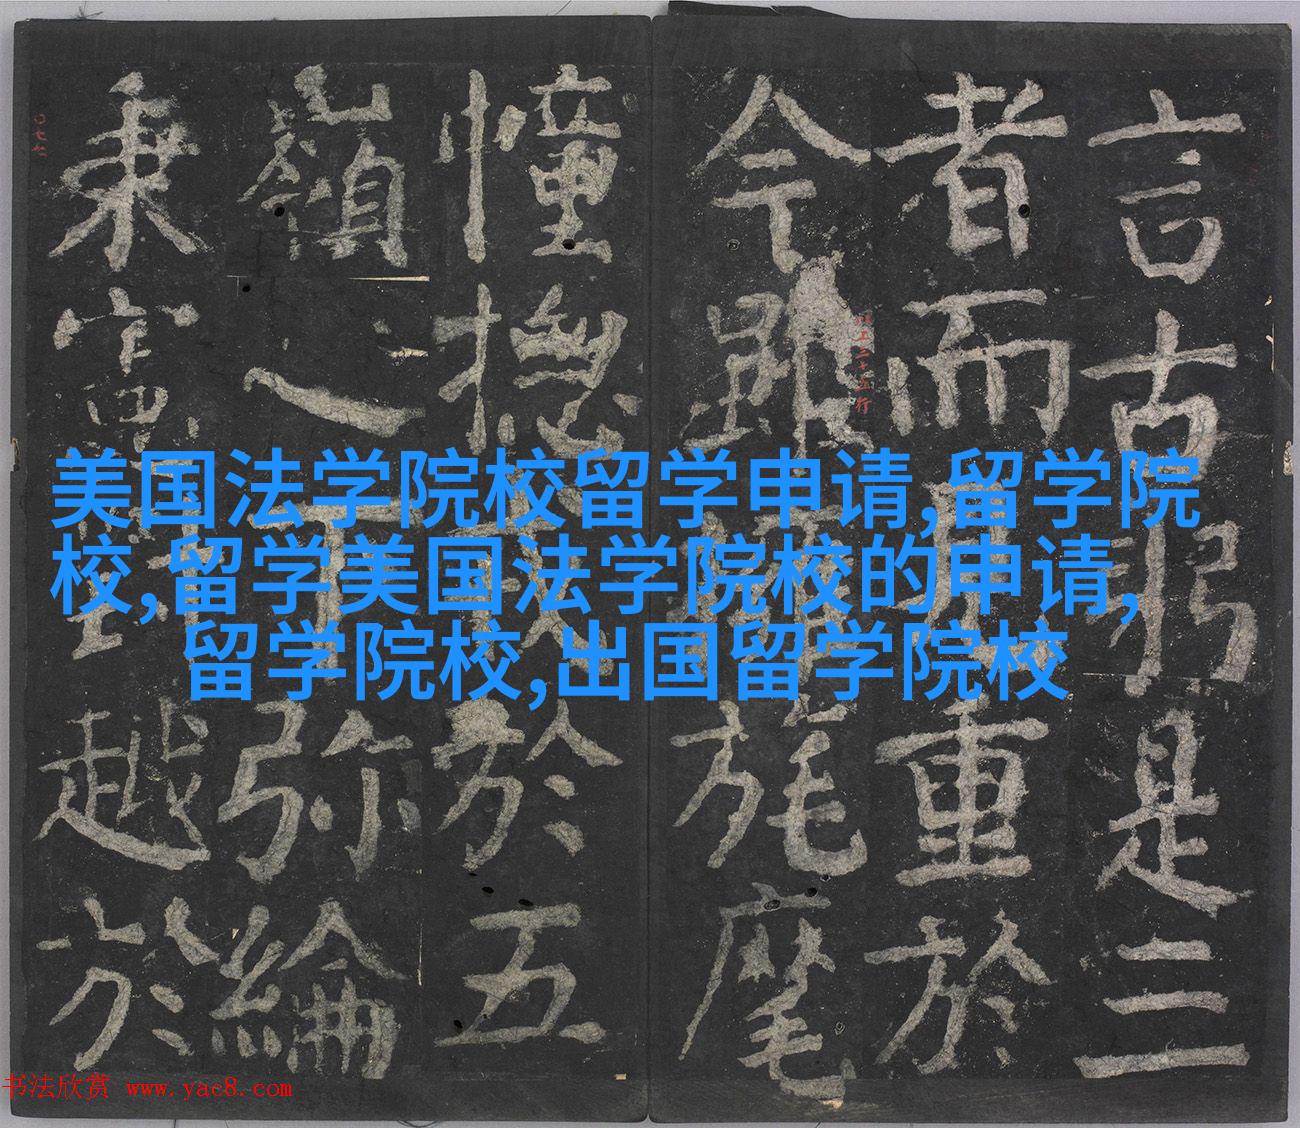 美国法学院校留学申请,留学院
校,留学美国法学院校的申请,
留学院校,出国留学院校
言古是三
者而重於
今旄麾
憧揔於五
嶺之下弥綸
秉越於
书法欣赏 www.yac8.com